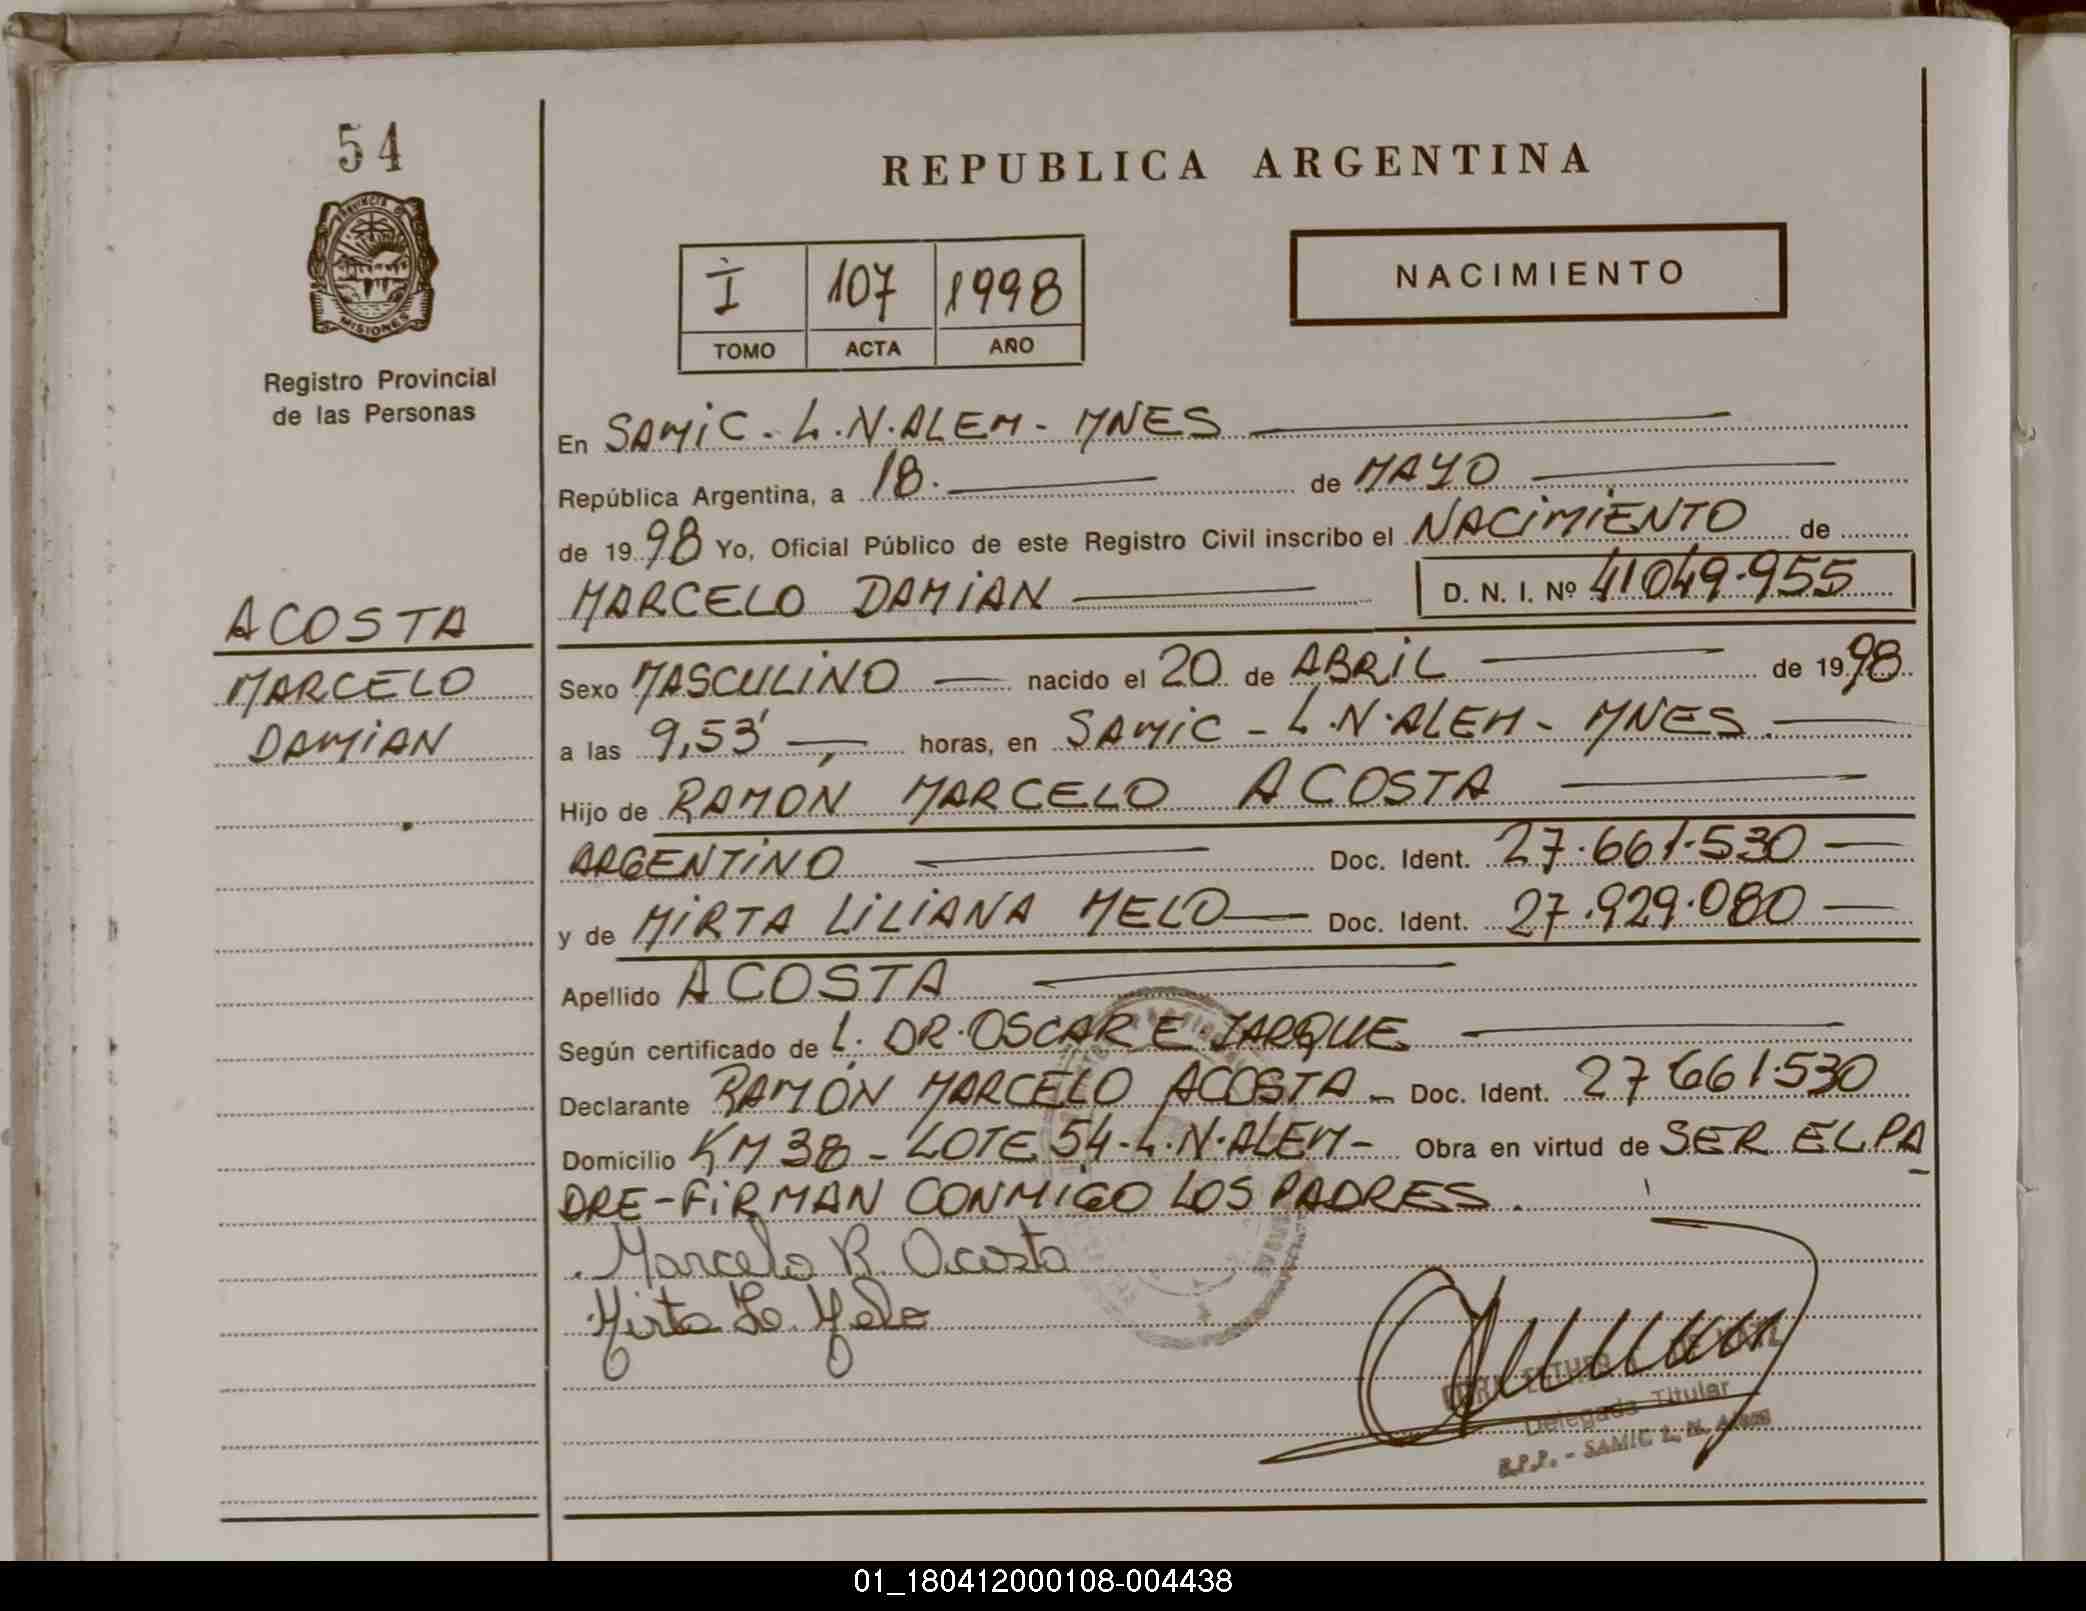 54
PROVINCIA D
MISIONES
Registro Provincial
de las Personas
ACOSTA
MARCELO
DAMiAN
REPUBLICA ARGENTINA
I 107 1998
TOMO ACTA AÑO
NACIMIENTO
En SAMiC - L.N.ALEM - MNES
República Argentina, a 18. de MAYO
de 1998 Yo, Oficial Público de este Registro Civil inscribo el NACiMiENTO de
MARCELO DAMiAN D. N. I. Nº 41049.955
Sexo MASCULiNO nacido el 20 de ABRiL de 1998
a las 9,53' horas, en SAMiC - L.N.ALEM - MNES.
Hijo de RAMON MARCELO ACOSTA
ARGENTiNO Doc. Ident. 27.661.530
y de MiRTA LiLiANA MELO Doc. Ident. 27.929.080
Apellido ACOSTA
Según certificado de L. DR. OSCAR E. JARQUE
Declarante RAMÓN MARCELO ACOSTA - Doc. Ident. 27 661.530
Domicilio KM 38 - LOTE 54 - L.N.ALEM - Obra en virtud de SER EL PA
DRE - FiRMAN CONMiGO LOS PADRES.
Marcelo R. Acosta
Mirta L. Melo
ESTHER
Delegada Titular
R.P.P. - SAMIC L. N. Alem
01_180412000108-004438